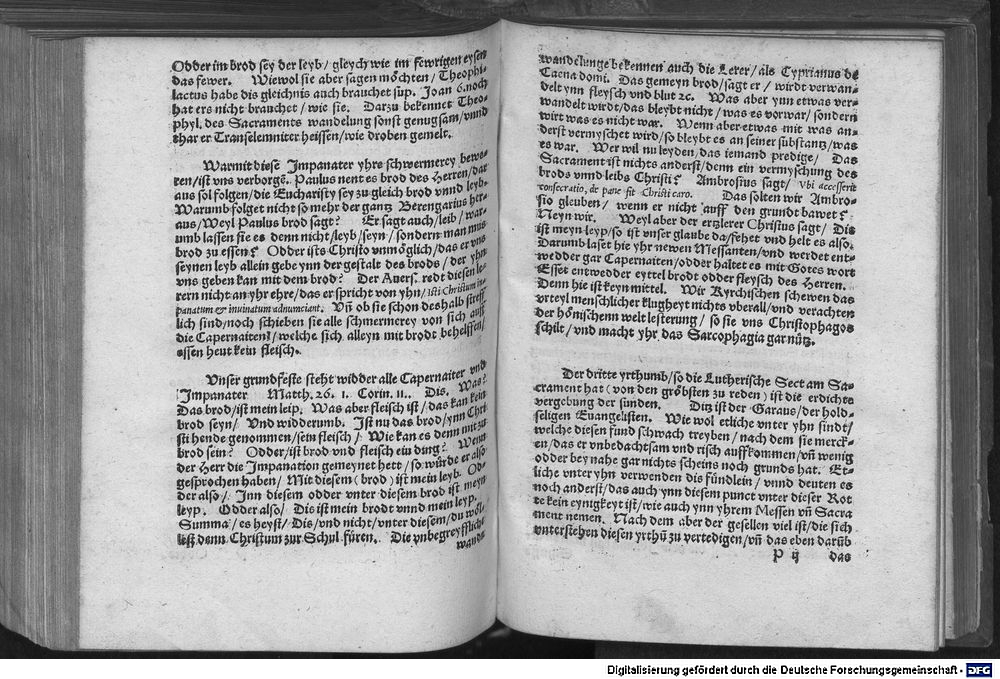 Odder im brod sey der leyb/ gleych wie im fewrigen eysen
das fewer. Wiewol sie aber sagen möchten/ Theophi-
lactus habe dis gleichnis auch brauchet sup. Joan 6. noch
hat ers nicht brauchet/ wie sie. Darzu bekennet Theo-
phyl. des Sacraments wandelung sonst genugsam/ vnnd
thar er Transelemniter heissen/ wie droben gemelt.
Warmit diese Impanater yhre schwermerey bewe-
ken/ ist vns verborgē. Paulus nent es brod des Herren/ dar
aus sol folgen/ die Eucharisty sey zu gleich brod vnnd leyb.
Warumb folget nicht so mehr der gantz Berengarius her-
aus/ Weyl Paulus brod sagt? Er sagt auch/ leib/ war-
umb lassen sie es denn nicht/ leyb/ seyn/ sondern man mus
brod zu essen? Odder ists Christo vnmöglich/ das er vns
seynen leyb allein gebe ynn der gestalt des brods/ der yhn
vns geben kan mit dem brod? Der Auers. redt diesen le-
rern nicht an yhr ehre/ das er spricht von yhn/ isti Christum in-
panatum & inuinatum adnunciant. Vñ ob sie schon deshalb streff
lich sind/ noch schieben sie alle schmermerey von sich auff
die Capernaiten/ welche sich alleyn mit brodt behelffen/
essen heut kein fleisch.
Vnser grundfeste steht widder alle Capernaiter vnd
Impanater Matth. 26. 1. Corin. 11. Dis. Was?
Das brod/ ist mein leip. Was aber fleisch ist/ das kan kein
brod seyn/ Vnd widderumb. Ist nu das brod/ ynn Chri
sti hende genommen/ sein fleisch/ Wie kan es denn mit zu
brod sein? Odder/ ist brod vnd fleisch ein ding? Wenn
der Herr die Impanation gemeynet hett/ so würde er also
gesprochen haben/ Mit diesem (brod) ist mein leyb. Od-
der also/ Inn diesem odder vnter diesem brod ist meyn
leyp. Odder also/ Dis ist mein brodt vnnd mein leyp.
Summa/ es heyst/ Dis/ vnd nicht/ vnter diesem/ du wöl-
lest denn Christum zur Schul füren. Die vnbegreyffliche
wands
wandelunge bekennen auch die Lerer/ als Cyprianus de
Caena domi. Das gemeyn brod/ sagt er/ wirdt verwan-
delt ynn fleysch vnd blut 2c. Was aber ynn etwas ver-
wandelt wirdt/ das bleybt nicht/ was es vorwar/ sondern
wirt was es nicht war. Wenn aber etwas mit was an-
derst vermyschet wird/ so bleybt es an seiner substantz/ was
es war. Wer wil nu leyden/ das iemand predige/ Das
Sacrament ist nichts anderst/ denn ein vermyschung des
brods vnnd leibs Christi? Ambrosius sagt/ Vbi accesserit
consecratio, de pane fit Christi caro. Das solten wir Ambro-
sio gleuben/ wenn er nicht auff den grundt bawet?
Neyn wir. Weyl aber der ertzlerer Christus sagt/ Dis
ist meyn leyp/ so ist vnser glaube da/ fehet vnd helt es also.
Darumb laset hie yhr newen Messanten/ vnd werdet ent-
wedder gar Capernaiten/ odder haltet es mit Gotes wort
Esset entwedder eyttel brodt odder fleysch des Herren.
Denn hie ist keyn mittel. Wir Kyrchischen schewen das
vrteyl menschlicher klugheyt nichts vberall/ vnd verachten
der hönischenn welt lesterung/ so sie vns Christophagos
schilt/ vnd macht yhr das Sarcophagia gar nütz.
Der dritte yrthumb/ so die Lutherische Sect am Sa-
crament hat (von den gröbsten zu reden) ist die erdichte
vergebung der sunden. Ditz ist der Garaus/ der hold-
seligen Euangelisten. Wie wol etliche vnter yhn sindt/
welche diesen fund schwach treyben/ nach dem sie merck-
en/ das er vnbedachtsam vnd risch auffkommen/ vñ wenig
odder bey nahe gar nichts scheins noch grunds hat. Et-
liche vnter yhn verwenden dis fündlein/ vnnd deuten es
noch anderst/ das auch ynn diesem punct vnter dieser Rot
te kein eynigkeyt ist/ wie auch ynn yhrem Messen vñ Sacra
ment nemen. Nach dem aber der gesellen viel ist/ die sich
vnterstehen diesen yrthū zu vertedigen/ vñ das eben darūb
P ij das
Digitalisierung gefördert durch die Deutsche Forschungsgemeinschaft - DFG